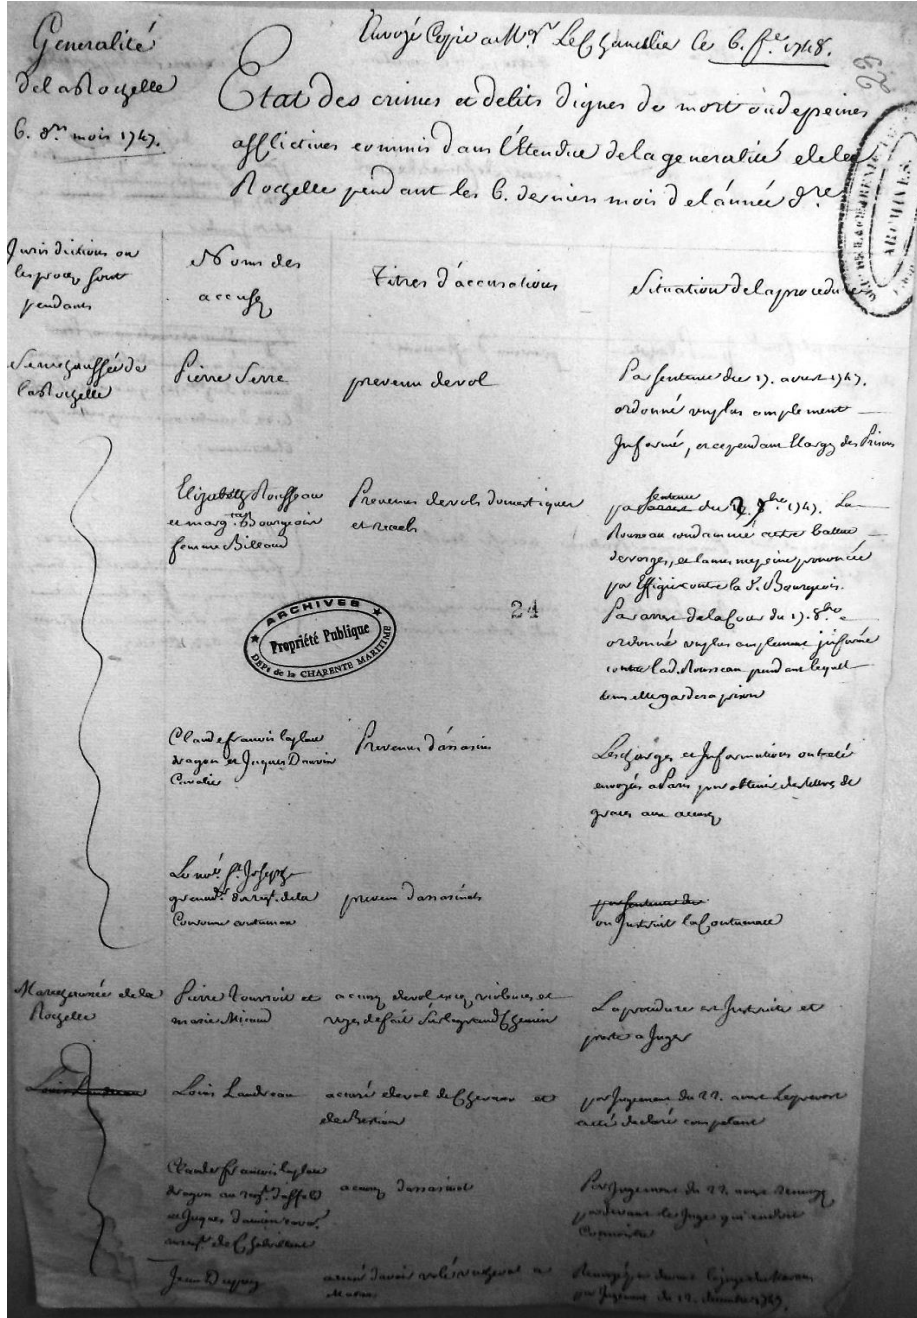 Generalité
de la Rochelle
6. d.rs mois 1747.
Envoyé Copie a M.gr Le Chancellier le 6. f.er 1748.
Etat des crimes et delits dignes de mort ou de peines
afflictives commis dans l'Etendue de la generalité de la
Rochelle pendant les 6. derniers mois de l'année d.re
29
ARCHIVES
Jurisdictions ou
les procez sont
pendants
Noms des
accusez
Titres d'accusations
Situation de la procedure
Senechaussée de
la Rochelle
Pierre Serre
prevenu de vol
Par sentence du 17. aoust 1747.
ordonné un plus amplement
Informé, et cependant Elargy des Prisons
Elizabeth Rousseau
et marg. Bourgeois
femme Billaud
Prevenus de vols domestiques
et recels
par sentence du 7.bre 1747. La
Rousseau condamnée a estre battue
de verges, et la mesme peine prononcée
par Effigie contre la d. Bourgeois.
Par arrest de la Cour du 17. 8.bre
ordonné un plus amplement informé
contre lad. Rousseau pendant lequel
tems elle gardera prison
ARCHIVES
Propriété Publique
DÉPt de la CHARENTE MARITIME
24
Claude francois laplace
dragon et Jacques Dauvin
Cavalier
Prevenus d'assasin
Les charges et Informations ont eté
envoyées a Paris pour obtenir des lettres de
graces aux accusez
Le no.é S.t Joseph
grenad.r du reg.t de la
Couronne contumax
prevenu d'assasinat
par sentence du
on Instruit la Contumace
Marechaussée de la
Rochelle
Pierre et
marie Micaud
accusez de vol excez, violences et
voyes de fait sur le grand Chemin
La procedure est Instruite et
preste a Juger
Louis Landreau
Louis Landreau
accusé de vol de Chevaux et
de Bestiaux
par Jugement du 22. aoust Le prevost
a été declaré competant
Claude francois laplace
dragon au reg.t
et Jacques Dauvin caval.
accusez d'assasinat
Par Jugement du 22. aoust Renvoyez
par devant le Juge qui en doit
Connoitre
Jean Dupuy
accusé d'avoir volé un cheval a
Renvoyé par devant le juge de Marans
par Jugement du 12. decembre 1747.